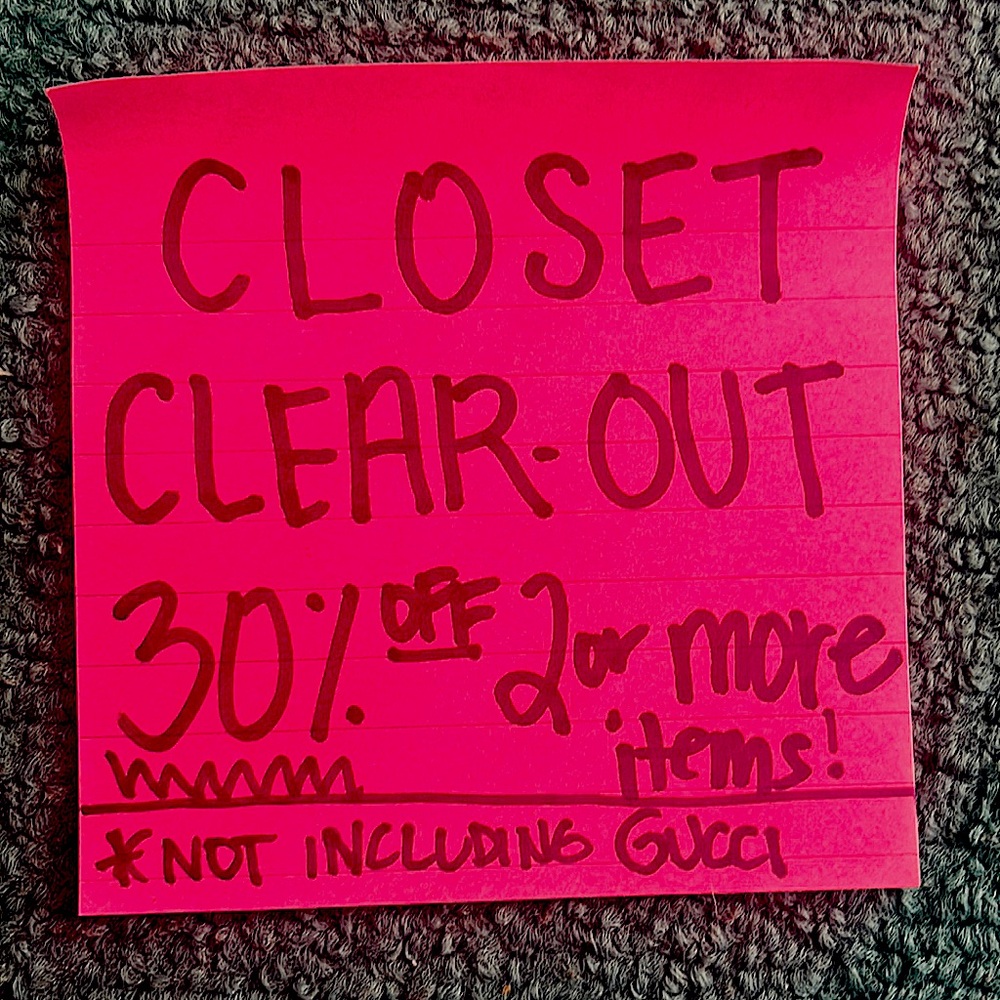 CLOSET
CLEAR-OUT
30% OFF 2 or more
items!
*NOT INCLUDING GUCCI